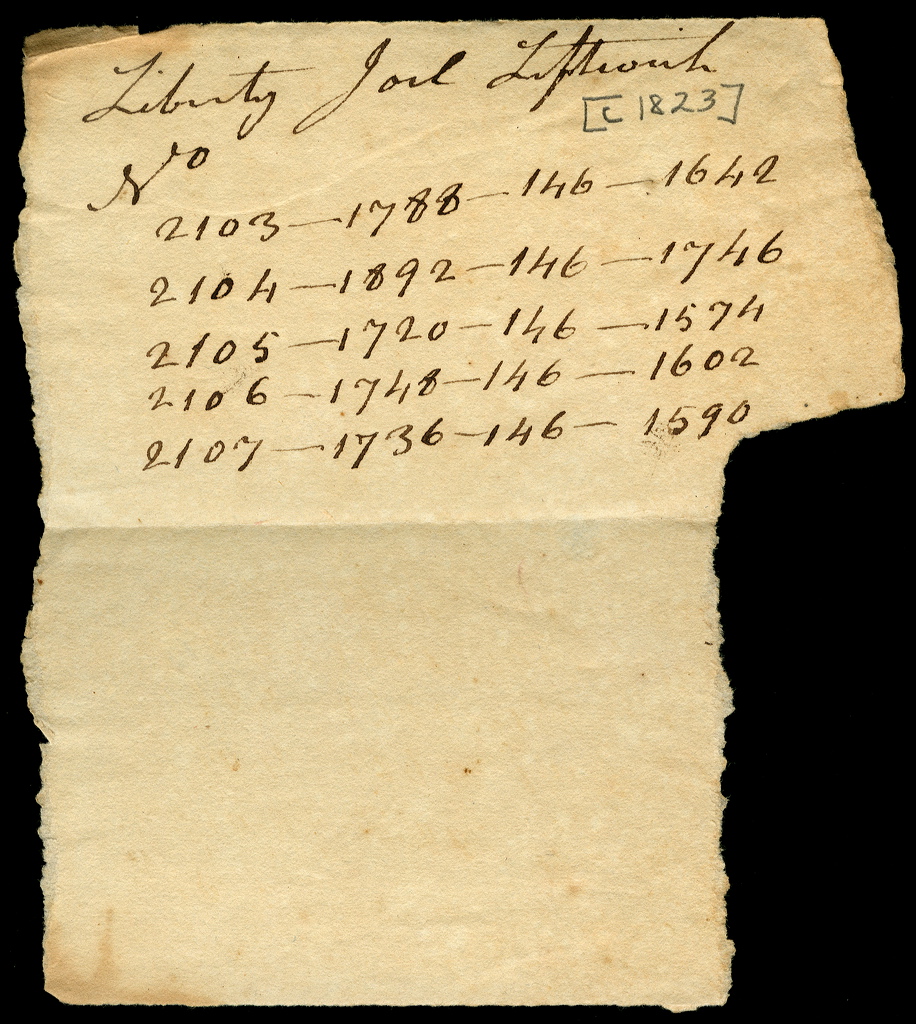 Liberty Joel Leftwich
[c 1823]
No
2103—1788—146—1642
2104—1892—146—1746
2105—1720—146—1574
2106—1748—146—1602
2107—1736—146—1590